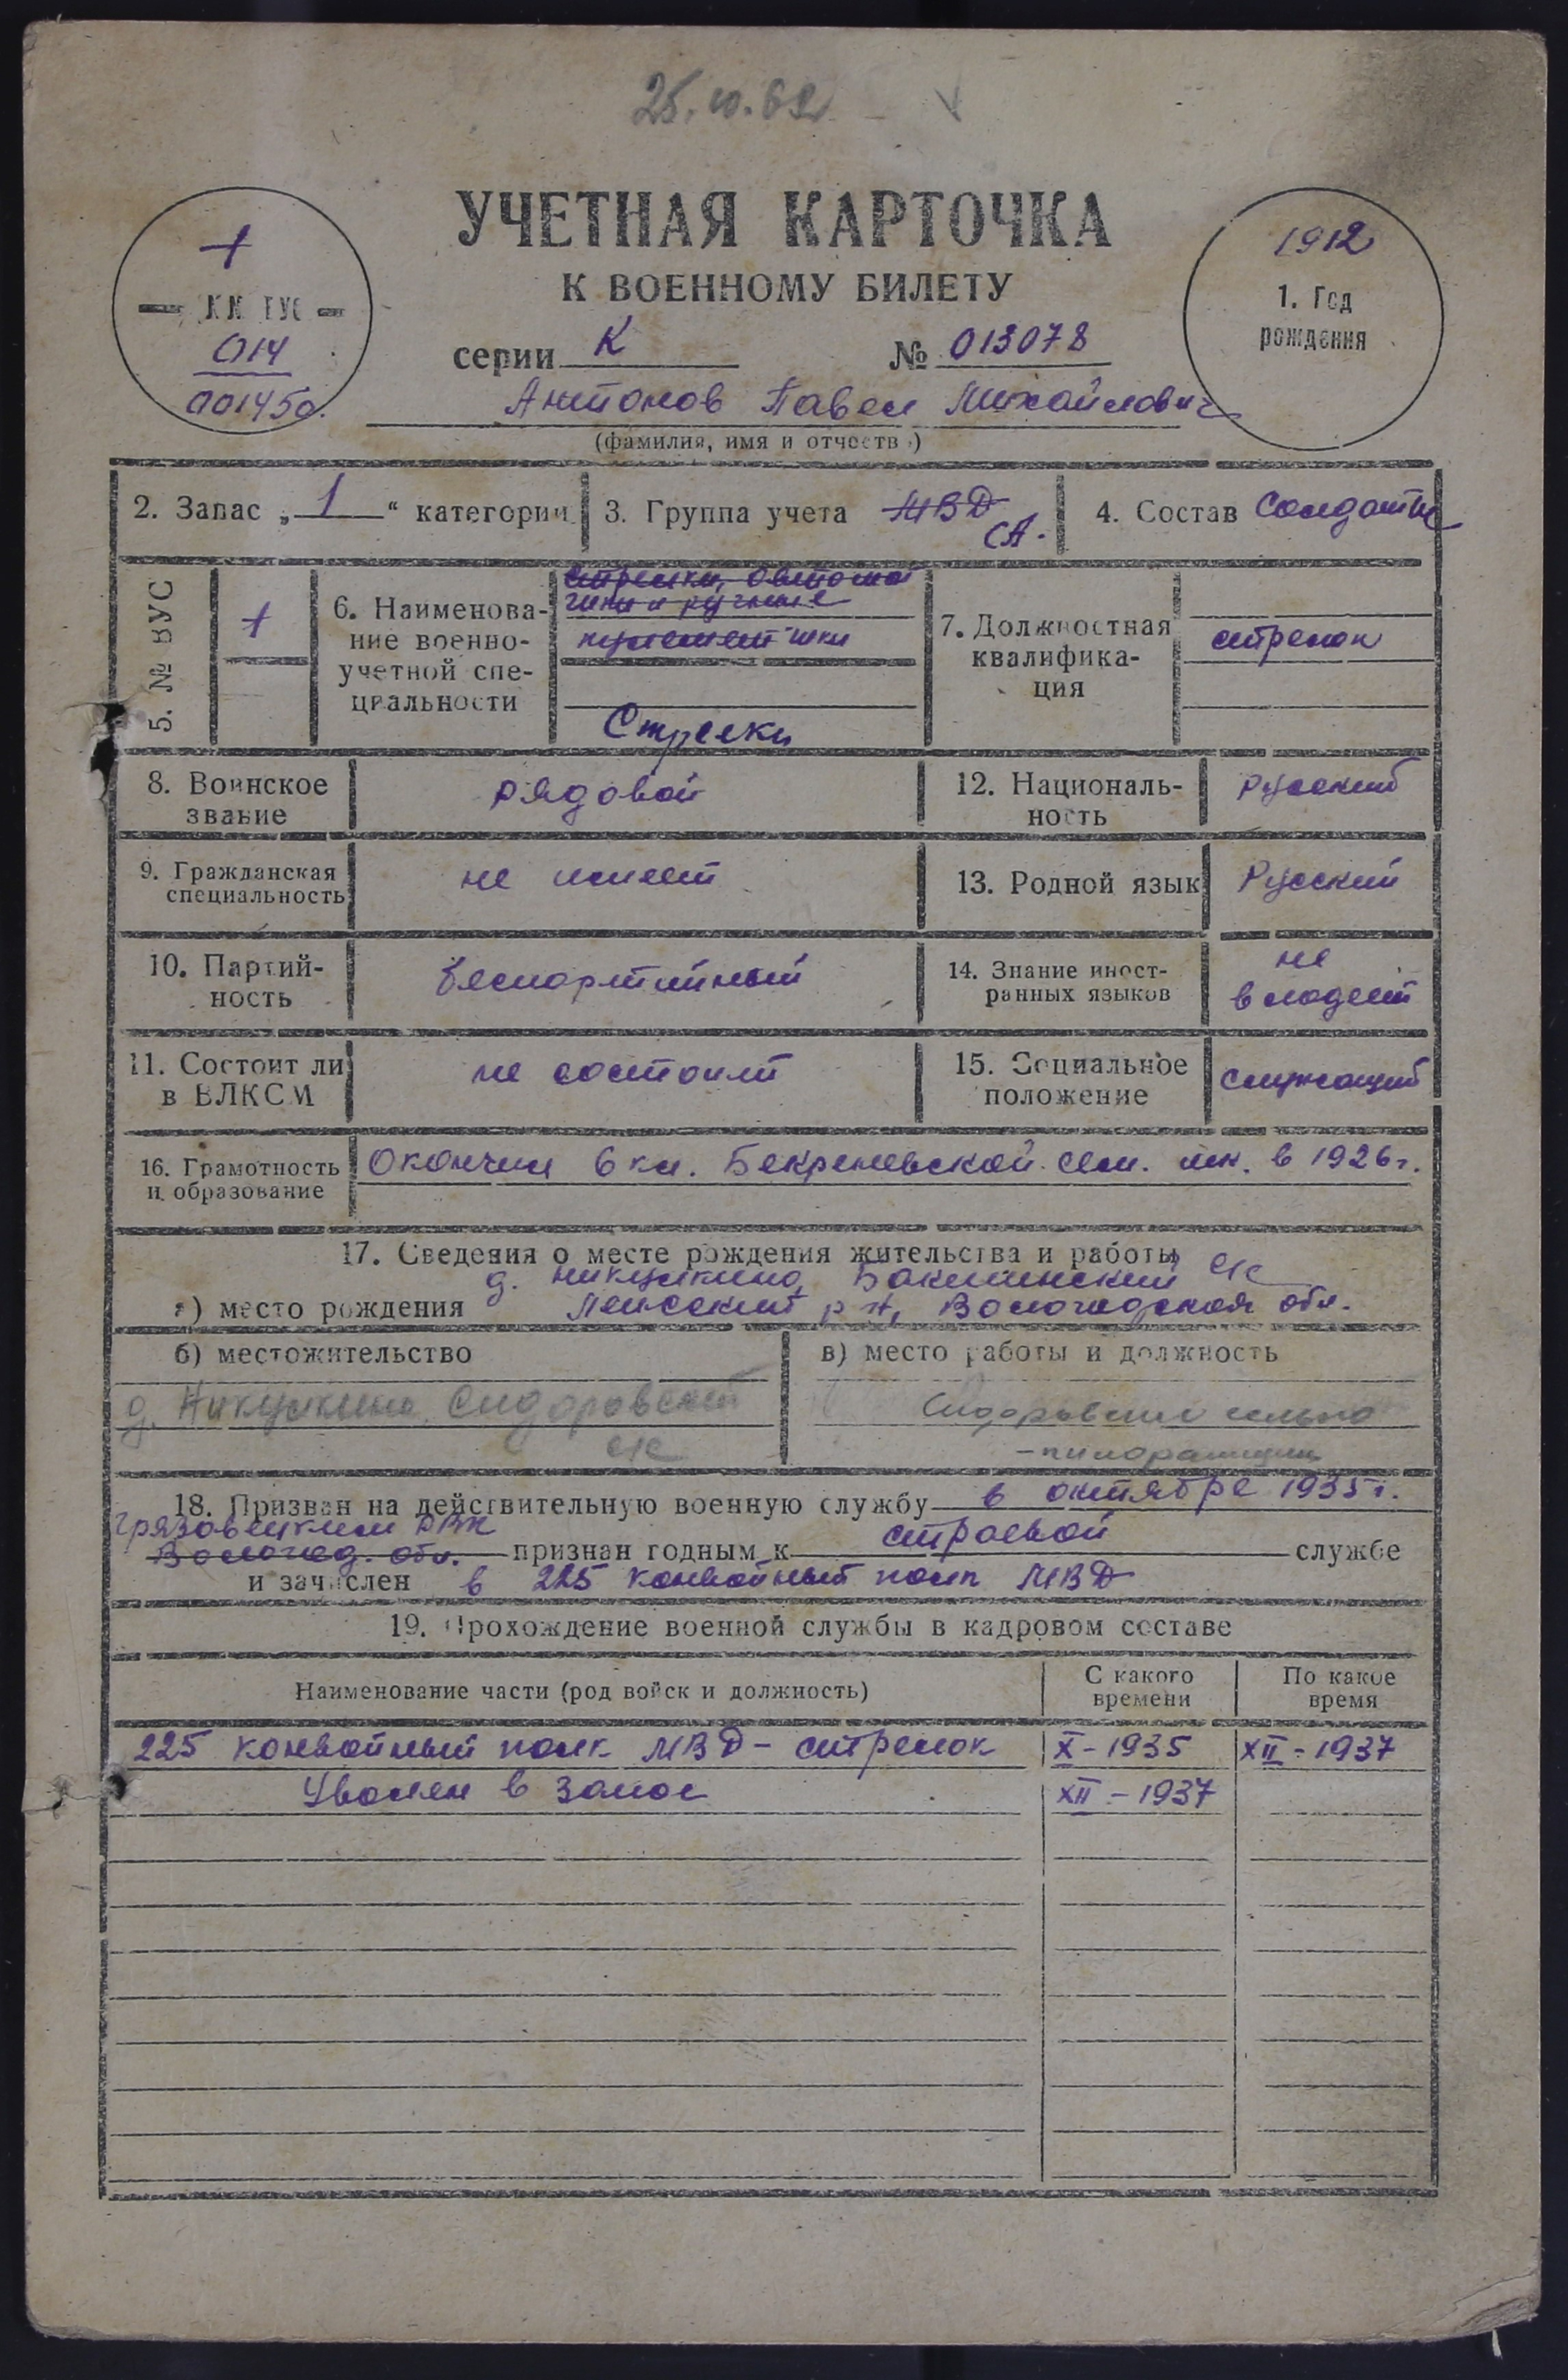 25.10.62
УЧЕТНАЯ КАРТОЧКА
К ВОЕННОМУ БИЛЕТУ
серии К № 013078
Антонов Павел Михайлович
(фамилия, имя и отчество)
1
014
001450.
1912
1. Год
рождения
2. Запас „1“ категории
3. Группа учета МВД
СА.
4. Состав Солдаты
5. № ВУС
1
6. Наименова-
ние военно-
учетной спе-
циальности
Стрелки, автомат
чики и ручные
пулеметчики
Стрелки
7. Должностная
квалифика-
ция
стрелок
8. Воинское
звание
рядовой
12. Националь-
ность
Русский
9. Гражданская
специальность
не имеет
13. Родной язык
Русский
10. Партий-
ность
беспартийный
14. Знание иност-
ранных языков
не
владеет
11. Состоит ли
в ВЛКСМ
не состоит
15. Социальное
положение
служащий
16. Грамотность
и образование
Окончил 6 кл. Бекреневской сем. шк. в 1926 г.
17. Сведения о месте рождения жительства и работы
д. Никулкино, Бакшинский с/с
а) место рождения р-н, Вологодская обл.
б) местожительство
д. Сидоровский
с/с
в) место работы и должность
Сидоровское сельпо
- пилорамщик
18. Призван на действительную военную службу в октябре 1935 г.
Грязовецким РВК
Вологод. обл. признан годным к строевой службе
и зачислен в 225 конвойный полк МВД
19. Прохождение военной службы в кадровом составе
Наименование части (род войск и должность)
С какого
времени
По какое
время
225 конвойный полк МВД - стрелок X - 1935 XII - 1937
Уволен в запас XII - 1937